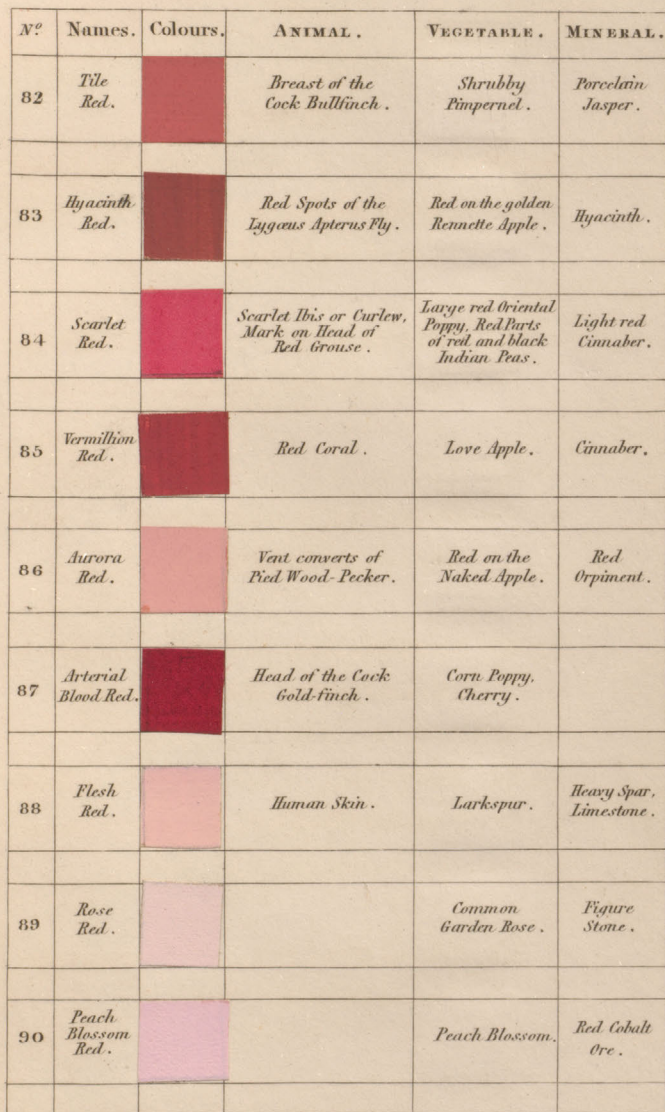 Nº Names. Colours. ANIMAL. VEGETABLE. MINERAL.
82
Tile
Red.
Breast of the
Cock Bullfinch.
Shrubby
Pimpernel.
Porcelain
Jasper.
83
Hyacinth
Red.
Red Spots of the
Lygæus Apterus Fly.
Red on the golden
Rennette Apple.
Hyacinth.
84
Scarlet
Red.
Scarlet Ibis or Curlew,
Mark on Head of
Red Grouse.
Large red Oriental
Poppy, Red Parts
of red and black
Indian Peas.
Light red
Cinnaber.
85
Vermillion
Red.
Red Coral.
Love Apple.
Cinnaber.
86
Aurora
Red.
Vent converts of
Pied Wood-Pecker.
Red on the
Naked Apple.
Red
Orpiment.
87
Arterial
Blood Red.
Head of the Cock
Gold-finch.
Corn Poppy,
Cherry.
88
Flesh
Red.
Human Skin.
Larkspur.
Heavy Spar,
Limestone.
89
Rose
Red.
Common
Garden Rose.
Figure
Stone.
90
Peach
Blossom
Red.
Peach Blossom.
Red Cobalt
Ore.